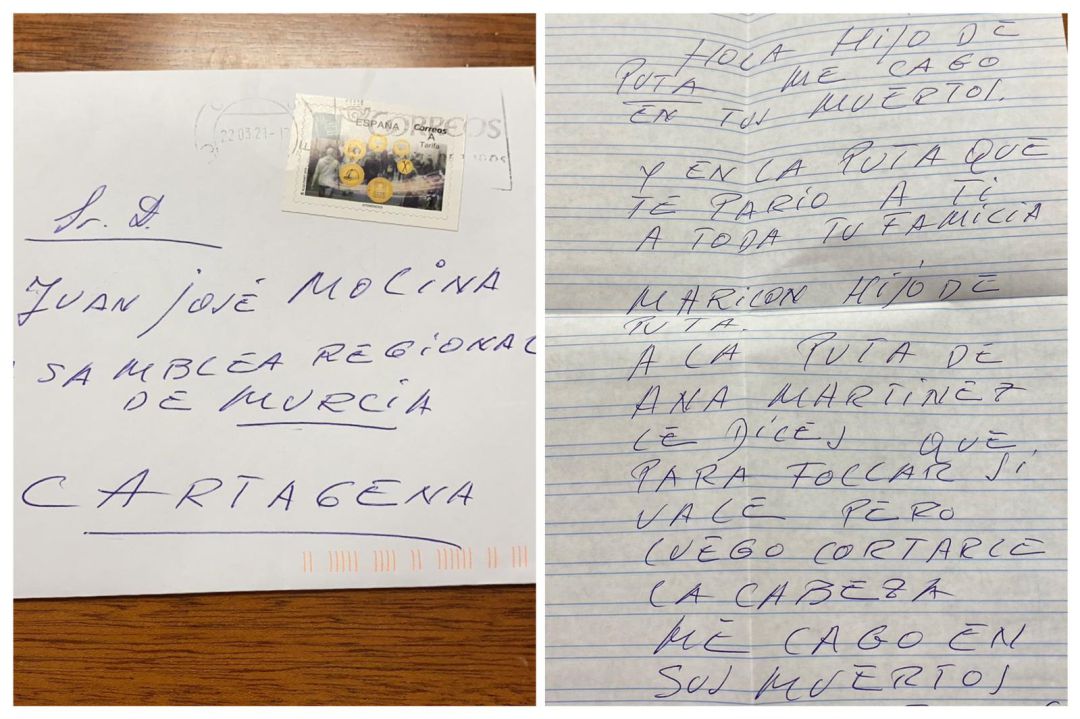 22.03.21-1
CORREOS
ESPAÑA
Correos
A
Tarifa
Sr. D.
JUAN JOSÉ MOLINA
SAMBLEA REGIONAL
DE MURCIA
CARTAGENA
HOLA HIJO DE
PUTA ME CAGO
EN TUS MUERTOS.
Y EN LA PUTA QUE
TE PARIO A TI
A TODA TU FAMILIA
MARICON HIJO DE
PUTA.
A LA PUTA DE
ANA MARTINEZ
LE DICES QUE
PARA FOLLAR SI
VALE PERO
LUEGO CORTARLE
LA CABEZA
ME CAGO EN
SUS MUERTOS